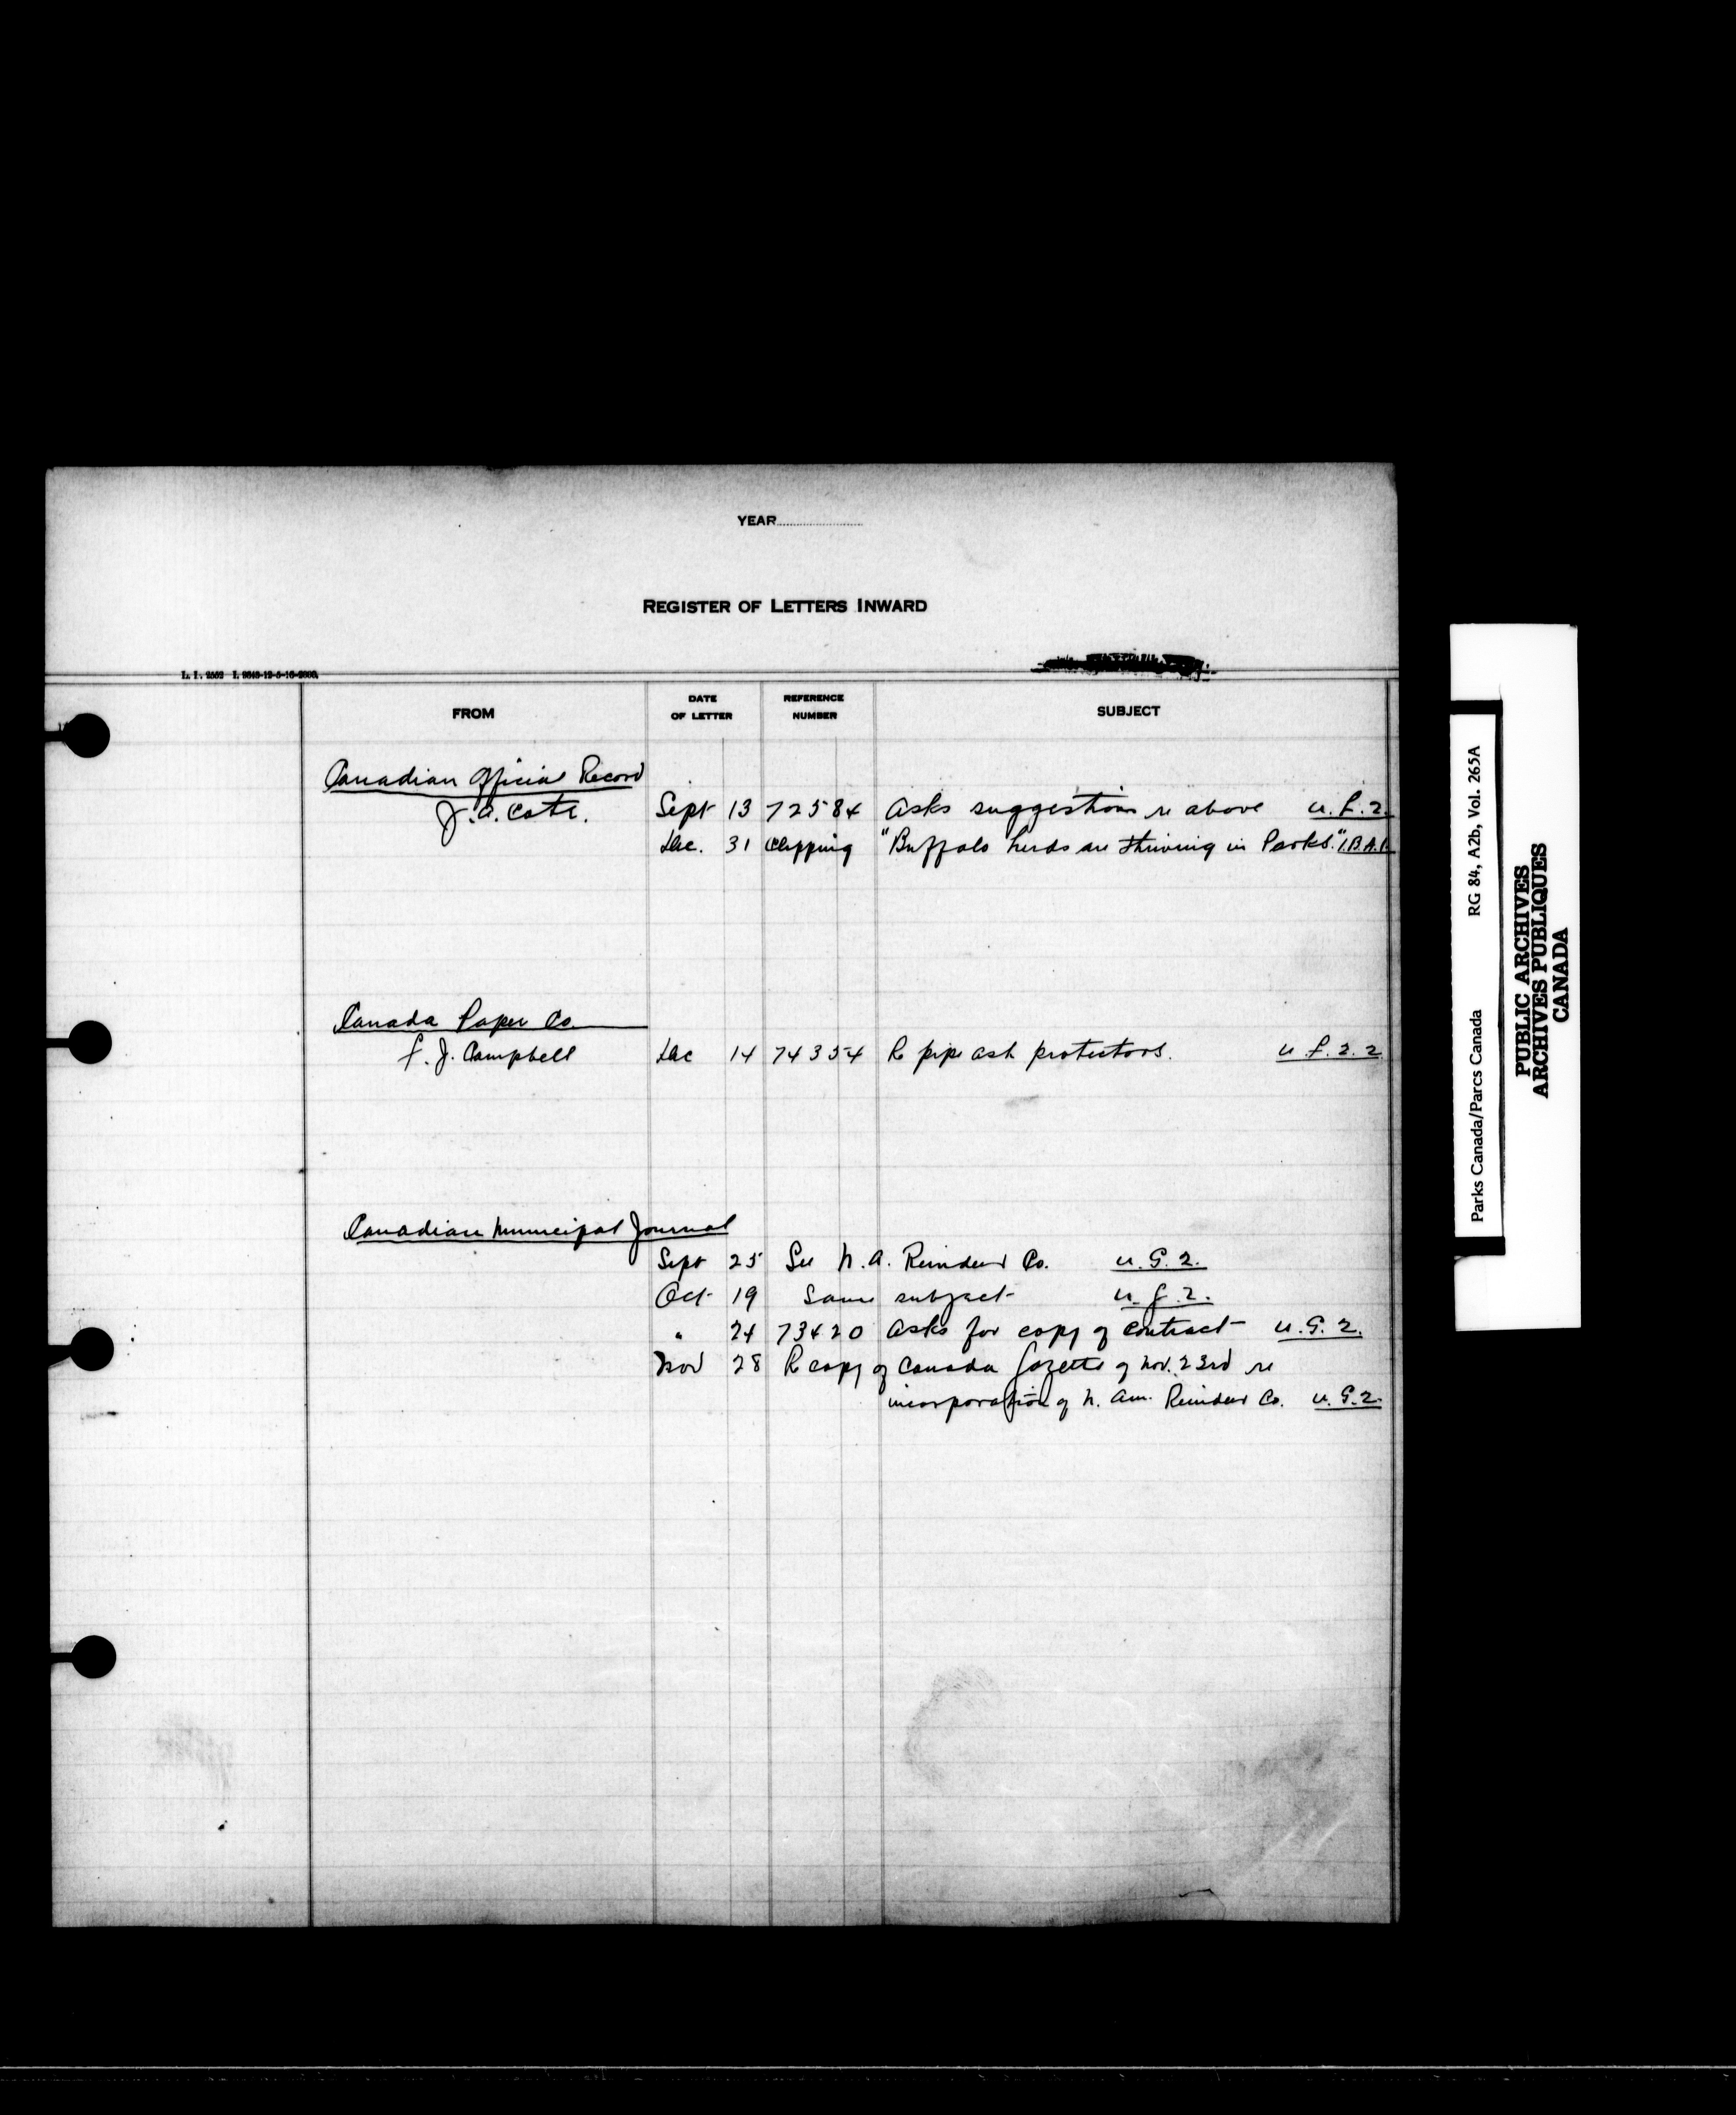 YEAR
REGISTER OF LETTERS INWARD
L. I. 2552 I. 9848-12-5-16-2000.
FROM DATE OF LETTER REFERENCE NUMBER SUBJECT
Canadian Official Record
J. A. Cote. Sept 13 72584 Asks suggestions re above U.L.2.
Dec. 31 Clipping "Buffalo herds are thriving in Parks."
Canada Paper Co.
F. J. Campbell Dec 14 74354 Re pipe ash protectors.
Canadian Municipal Journal
Sept 25 See N. A. Reindeer Co. U.G.2.
Oct 19 Same subject U.G.2.
" 24 73420 Asks for copy of contract U.G.2.
Nov 28 Re copy of Canada Gazette of Nov. 23rd re
incorporation of N. Am. Reindeer Co. U.G.2.
Parks Canada/Parcs Canada RG 84, A2b, Vol. 265A
PUBLIC ARCHIVES
ARCHIVES PUBLIQUES
CANADA